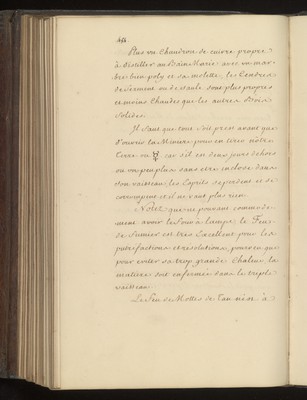 Plus un Chaudron de cuivre propre
à distiller au Bain Marie avec un mar
bre bien poly et sa molette, les Cendres
de Serment ou de Saule sont plus propres
et moins Chaudes que les autres Bois
solides.
Il faut que tout soit prest avant que
d'ouvrir la Miniere pour en tirer notre
Terre ou car s'il est deux jours dehors
ou un peu plus sans etre enclose dans
son vaisseau les Esprits se perdent et se
corrompent et il ne vaut plus rien.
Notez que ne pouvant commode
ment avoir le Four à lampe le Feu
de fumier est très Excellent pour les
putrefactions et resolutions, pourvu que
pour eviter sa trop grande Chaleur, la
matiere soit enfermée dans le triple
vaisseau.
Le Feu de Mottes de Tan n'est à